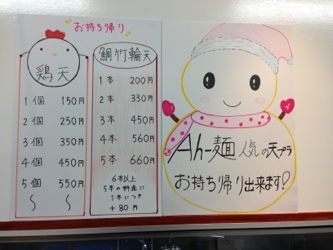 お持ち帰り
鶏天
1個 150円
2個 250円
3個 350円
4個 450円
5個 550円
鯛竹輪天
1本 200円
2本 330円
3本 450円
4本 560円
5本 660円
6本以上
5本の料金に
1本につき
+80円
Ah-麺 人気の天プラ
お持ち帰り出来ます!